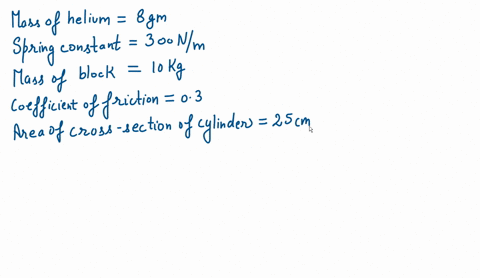 Mass of helium = 8gm
Spring constant = 300 N/m
Mass of block = 10 Kg
Coefficient of friction = 0.3
Area of cross-section of cylinder = 25cm